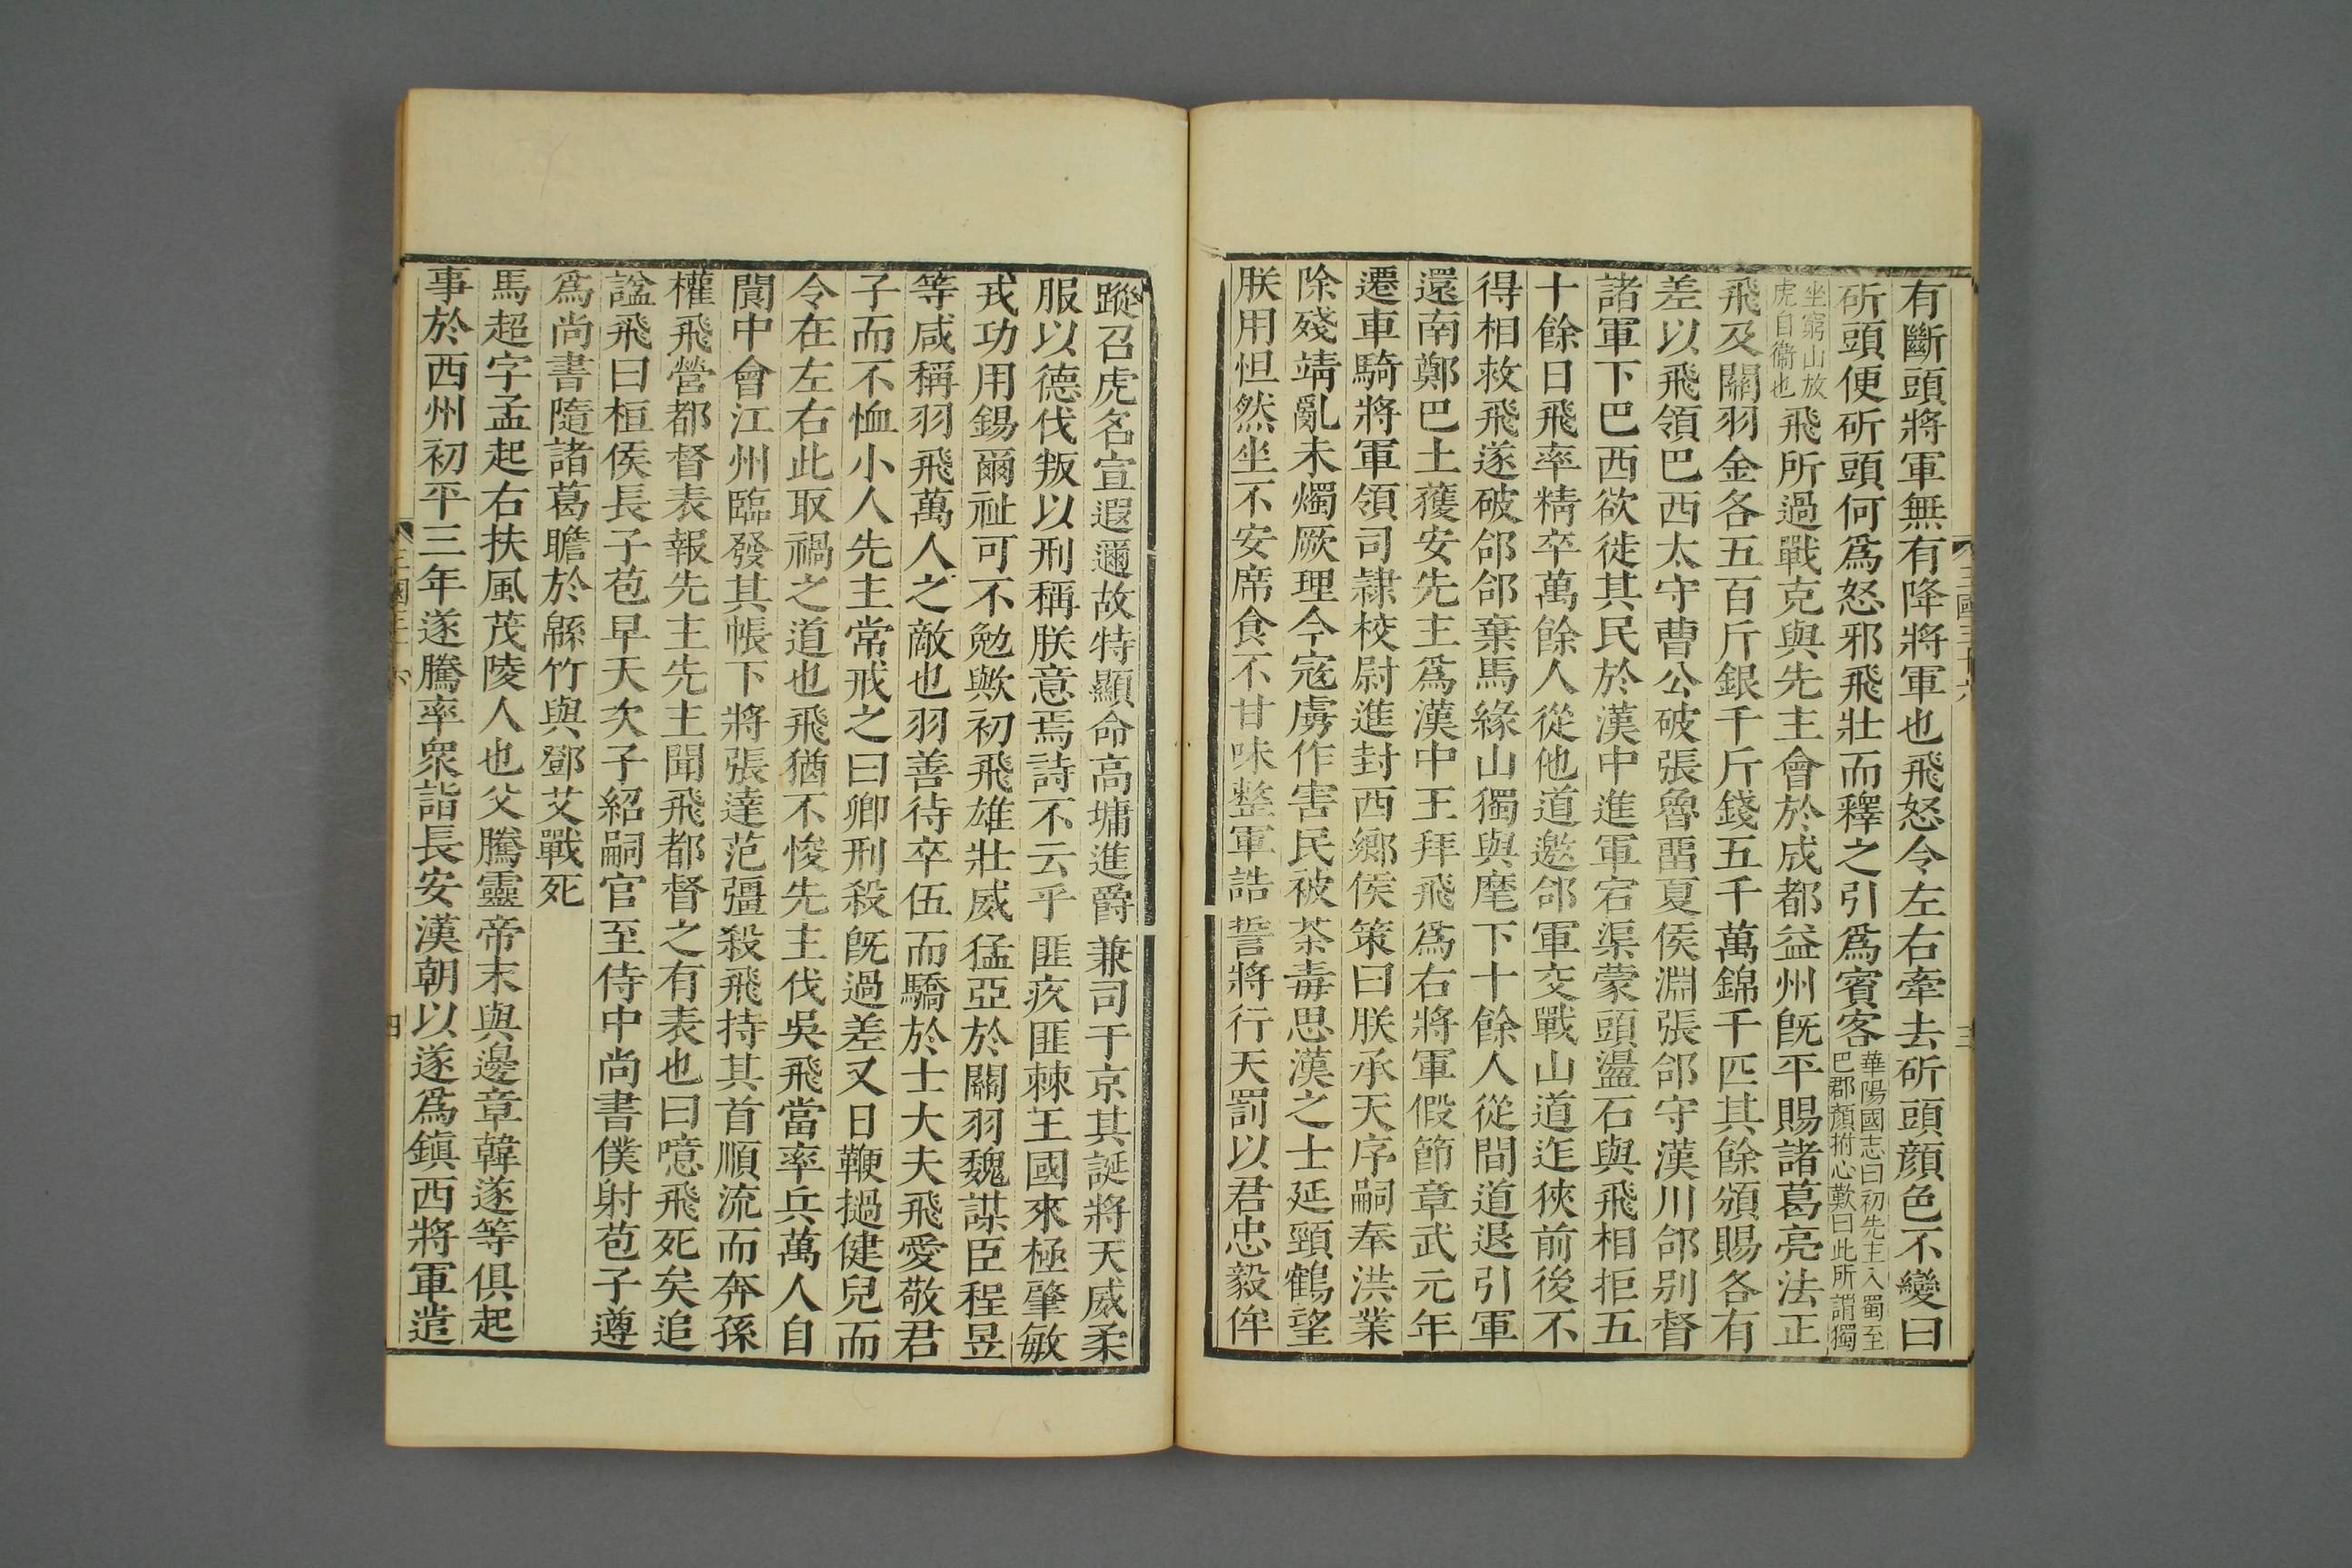 有斷頭將軍無有降將軍也飛怒令左右牽去斫頭顔色不變曰
斫頭便斫頭何爲怒邪飛壯而釋之引爲賓客華陽國志曰初先主入蜀至巴郡顔拊心歎曰此所謂獨
坐窮山放虎自衞也飛所過戰克與先主會於成都益州既平賜諸葛亮法正
飛及關羽金各五百斤銀千斤錢五千萬錦千匹其餘頒賜各有
差以飛領巴西太守曹公破張魯畱夏侯淵張郃守漢川郃别督
諸軍下巴西欲徙其民於漢中進軍宕渠蒙頭盪石與飛相拒五
十餘日飛率精卒萬餘人從他道邀郃軍交戰山道迮狹前後不
得相救飛遂破郃郃棄馬緣山獨與麾下十餘人從間道退引軍
還南鄭巴土獲安先主爲漢中王拜飛爲右將軍假節章武元年
遷車騎將軍領司隷校尉進封西鄉侯策曰朕承天序嗣奉洪業
除殘靖亂未燭厥理今寇虜作害民被荼毒思漢之士延頸鶴望
朕用怛然坐不安席食不甘味整軍誥誓將行天罰以君忠毅侔
三國三十六
三
蹤召虎名宣遐邇故特顯命高墉進爵兼司于京其誕將天威柔
服以德伐叛以刑稱朕意焉詩不云乎匪疚匪棘王國來極肇敏
戎功用錫爾祉可不勉歟初飛雄壯威猛亞於關羽魏謀臣程昱
等咸稱羽飛萬人之敵也羽善待卒伍而驕於士大夫飛愛敬君
子而不恤小人先主常戒之曰卿刑殺既過差又日鞭撾健兒而
令在左右此取禍之道也飛猶不悛先主伐吳飛當率兵萬人自
閬中會江州臨發其帳下將張達范彊殺飛持其首順流而奔孫
權飛營都督表報先主先主聞飛都督之有表也曰噫飛死矣追
諡飛曰桓侯長子苞早夭次子紹嗣官至侍中尚書僕射苞子遵
爲尚書隨諸葛瞻於緜竹與鄧艾戰死
馬超字孟起右扶風茂陵人也父騰靈帝末與邊章韓遂等俱起
事於西州初平三年遂騰率衆詣長安漢朝以遂爲鎭西將軍遣
三國三十六
四